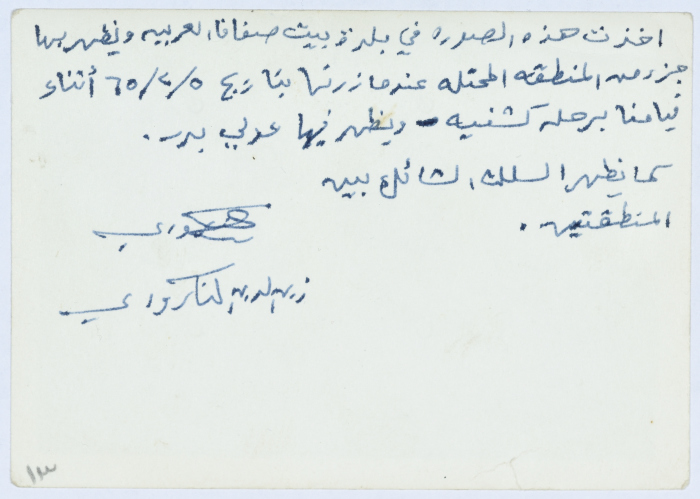 اخذت هذه الصوره في بلدة بيت صفافا العربيه ويظهر بها
جزء من المنطقه المحتله عندما زرتها بتاريخ ٦٥/٢/٥ أثناء
قيامنا برحله كشفيه - ويظهر فيها عولي بدر .
كما يظهر السلك الشائك بين
المنطقتين .
زين الدين التكروري
١٣